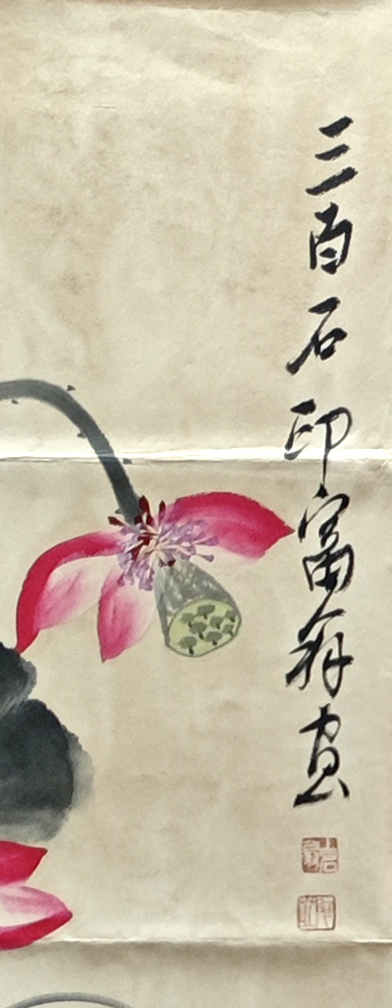 三百石印富翁画